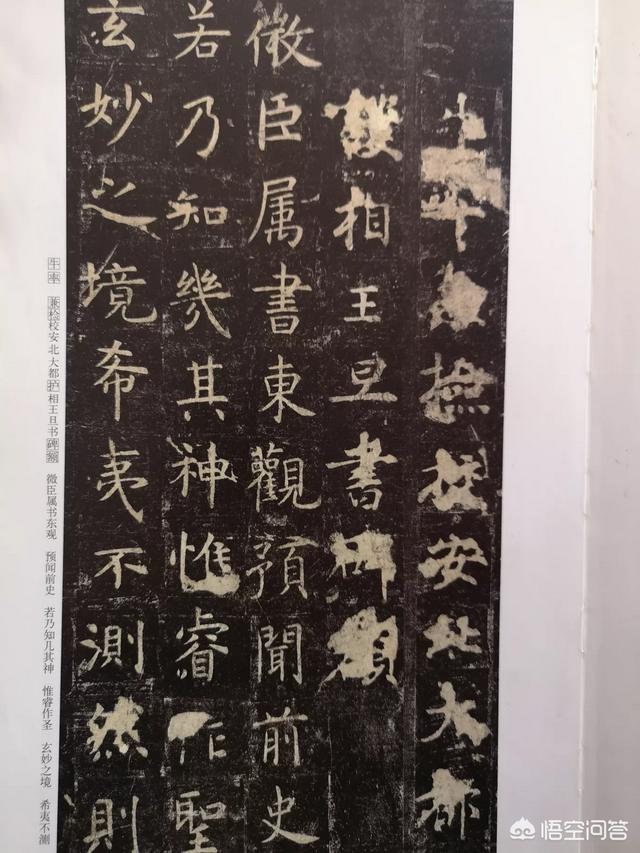 校安北大都
護相王旦書碑額
微臣属書東觀預聞前史
若乃知幾其神惟睿作聖
玄妙之境希夷不測然則
牛率 兼检校安北大都护相王旦书碑额 微臣属书东观 预闻前史 若乃知几其神 惟睿作圣 玄妙之境 希夷不测
悟空问答